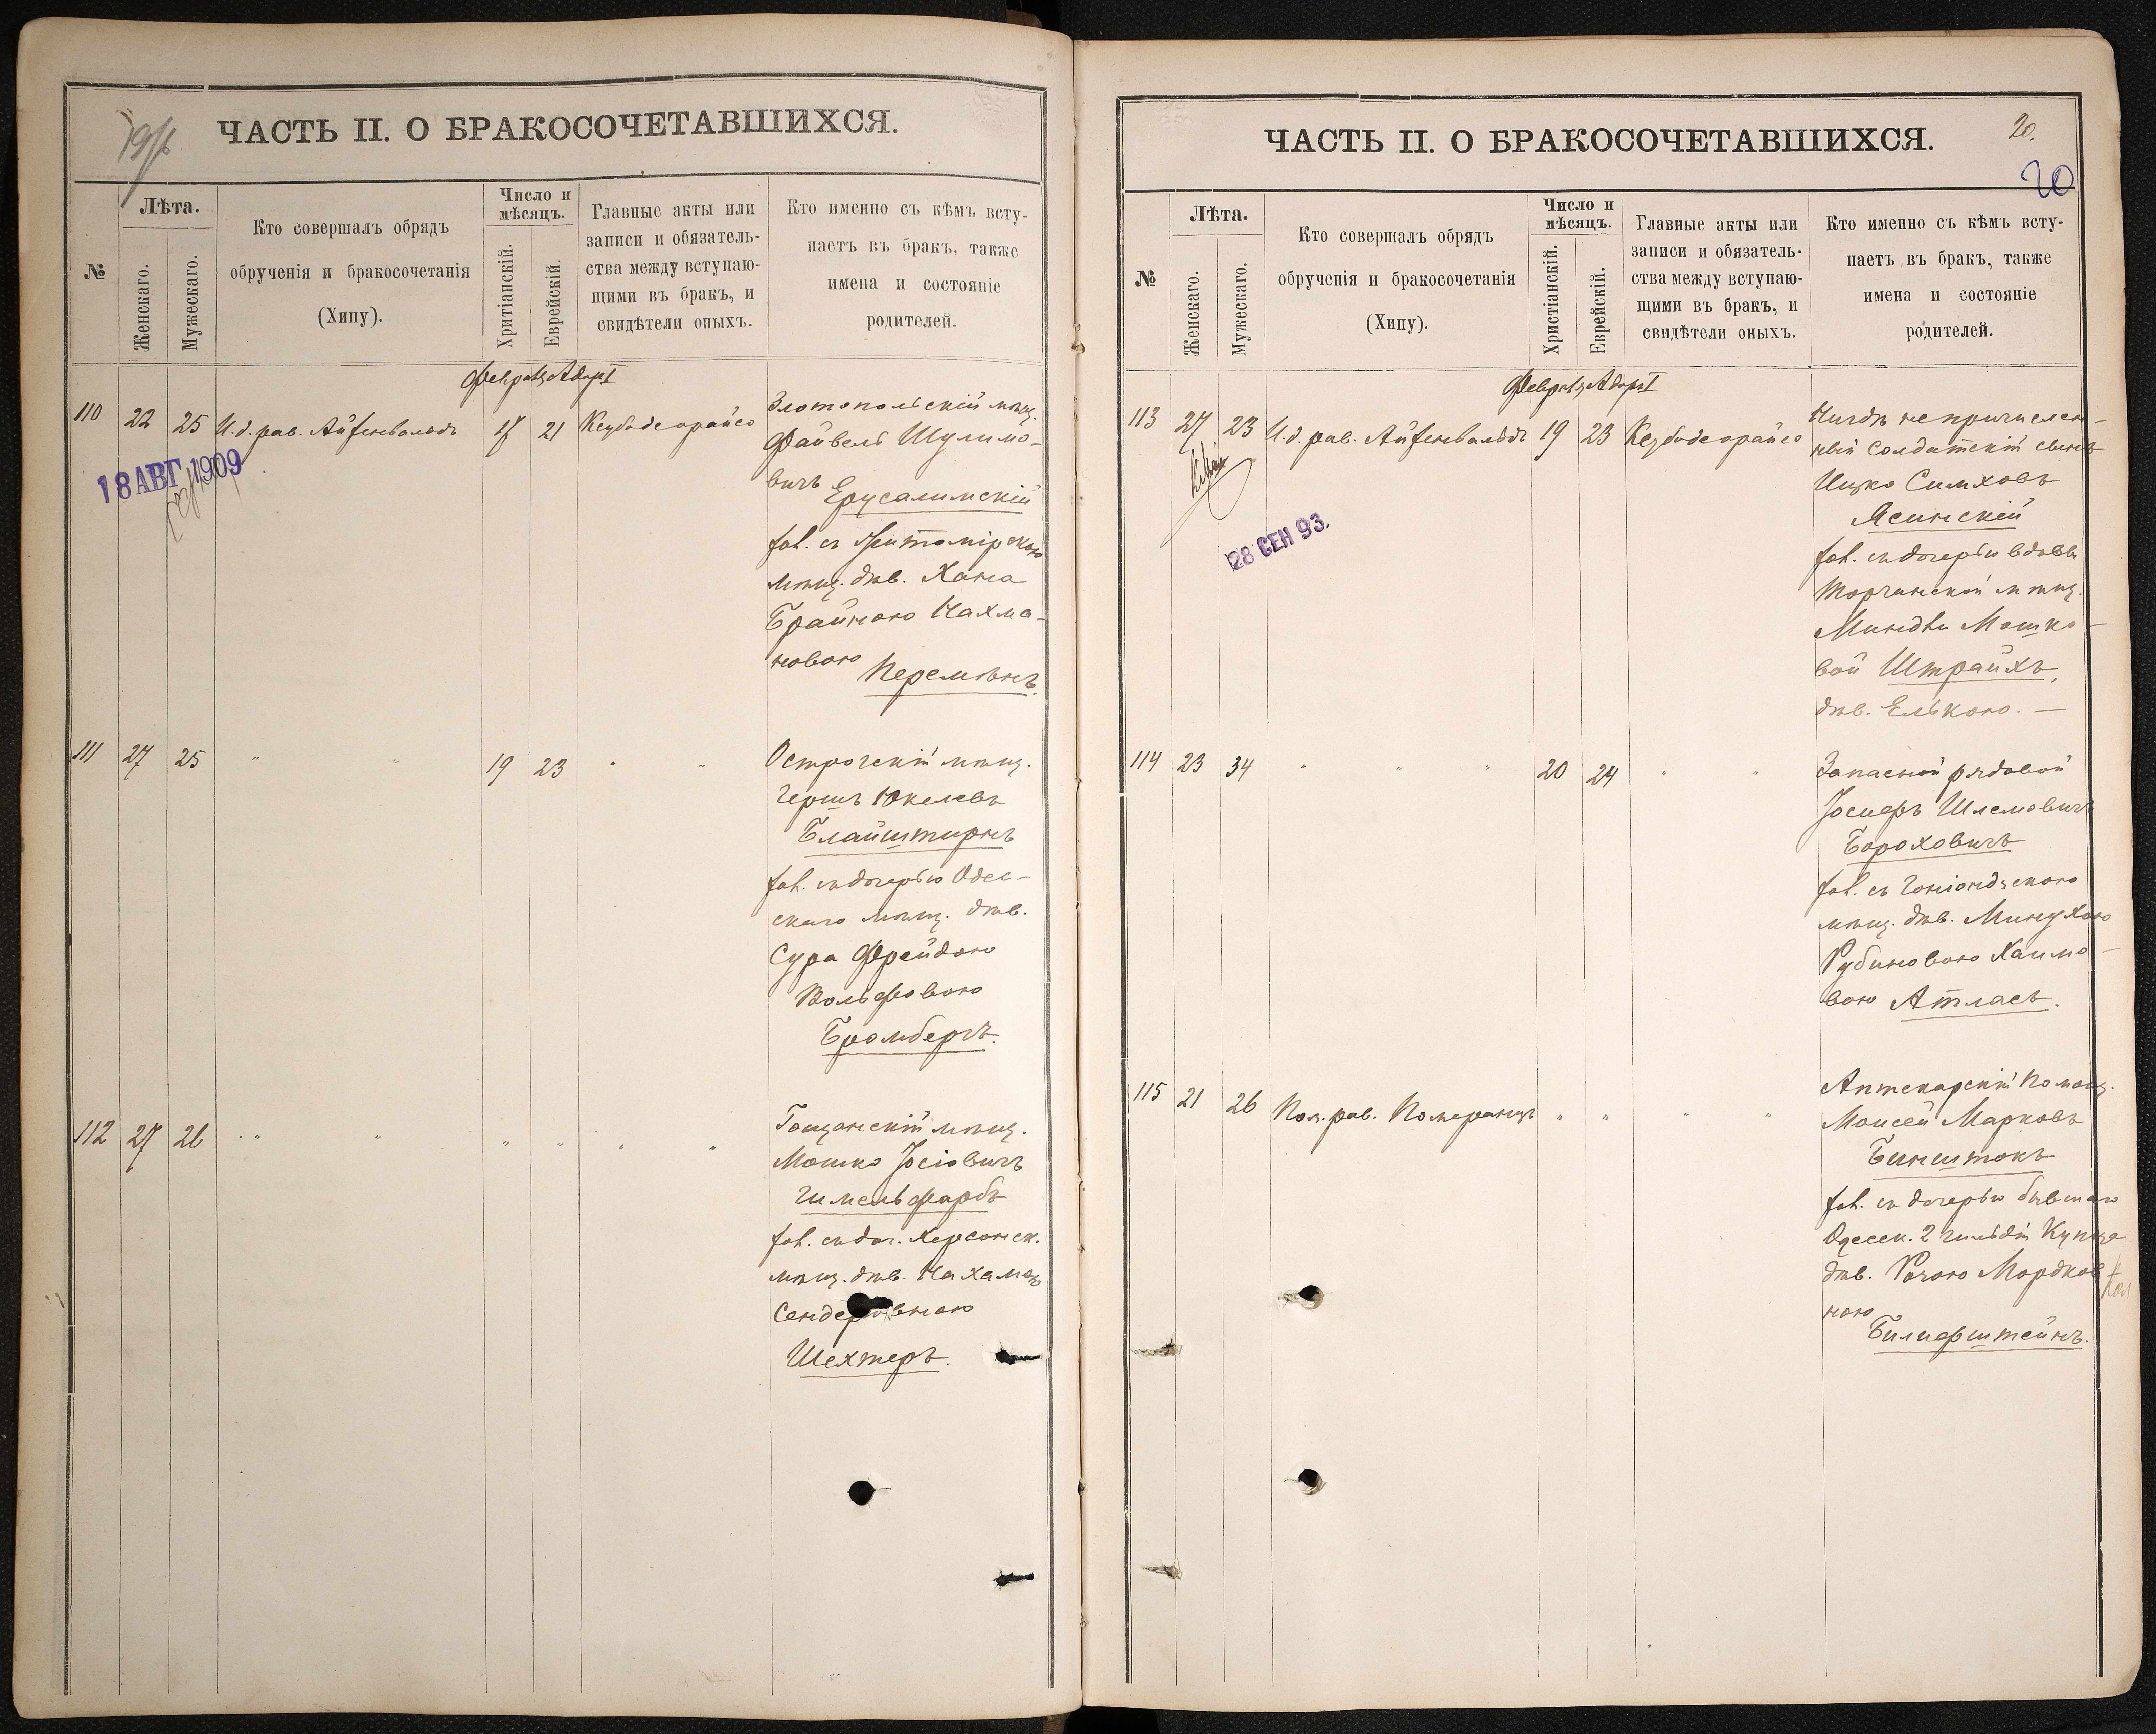 ЧАСТЬ II. О БРАКОСОЧЕТАВШИХСЯ.
№
Лѣта.
Женскаго.
Мужескаго.
Кто совершалъ обрядъ
обрученія и бракосочетанія
(Хипу).
Число и
мѣсяцъ.
Хритіанскій.
Еврейскій.
Главные акты или
записи и обязатель-
ства между вступаю-
щими въ бракъ, и
свидѣтели оныхъ.
Кто именно съ кѣмъ всту-
паетъ въ бракъ, также
имена и состояніе
родителей.
110 22 25 И.д. рав. Айзенвальдъ 17 21
18 АВГ 1909
Злотопольскій мѣщ.
Файвель Шулимо-
вичъ
Ерусалимскій
зак. съ Житомірскою
мѣщ. дѣв. Хана
Брайною Нахма-
новою
Перемѣнъ.
111 27 25 " " 19 23 " "
Острогскій мѣщ.
Гершъ Юкелевъ
Блайштирнъ
зак. съ дочерью Одес-
скаго мѣщ. дѣв.
Сура Фрейдою
Вольфовою
Бромбергъ.
112 27 26 " " " " " "
Гощанскій мѣщ.
Мошко Іосіовичъ
Гимельфарбъ
зак. съ доч. Херсонск.
мѣщ. дѣв. Нахамою
Сендеровною
Шехтеръ.
ЧАСТЬ II. О БРАКОСОЧЕТАВШИХСЯ.
20.
20
№
Лѣта.
Женскаго.
Мужескаго.
Кто совершалъ обрядъ
обрученія и бракосочетанія
(Хипу).
Число и
мѣсяцъ.
Христіанскій.
Еврейскій.
Главные акты или
записи и обязатель-
ства между вступаю-
щими въ бракъ, и
свидѣтели оныхъ.
Кто именно съ кѣмъ всту-
паетъ въ бракъ, также
имена и состояніе
родителей.
113 27 23 И.д. рав. Айзенвальдъ 19 23
28 СЕН 93.
Нигдѣ не причислен-
ный солдатскій сынъ
Ицко Симховъ
Ясинскій
зак. съ дочерью вдовы
Торчинской мѣщ.
Миндли Мошко-
вой Штрайхъ,
дѣв. Елькою. —
114 23 34 " " " 20 24 " "
Запасной рядовой
Іосифъ Шлемовичъ
Бороховичъ
зак. съ Гоніондзскою
мѣщ. дѣв. Минухою
Рубиновою Хаимо-
вою Атласъ.
115 21 26 Пом. рав. Померанцъ " " " "
Аптекарскій Помощ.
Моисей Марковъ
Бинштокъ
зак. съ дочерью бывшаго
Одесск. 2 гильдіи Купца
дѣв. Розою Мордков-
ною
Билиферштейнъ.